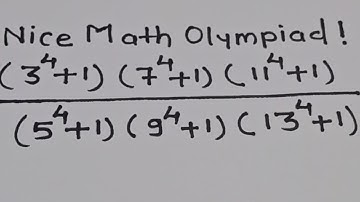 Nice Math Olympiad!
(3⁴+1) (7⁴+1) (11⁴+1)
(5⁴+1) (9⁴+1) (13⁴+1)